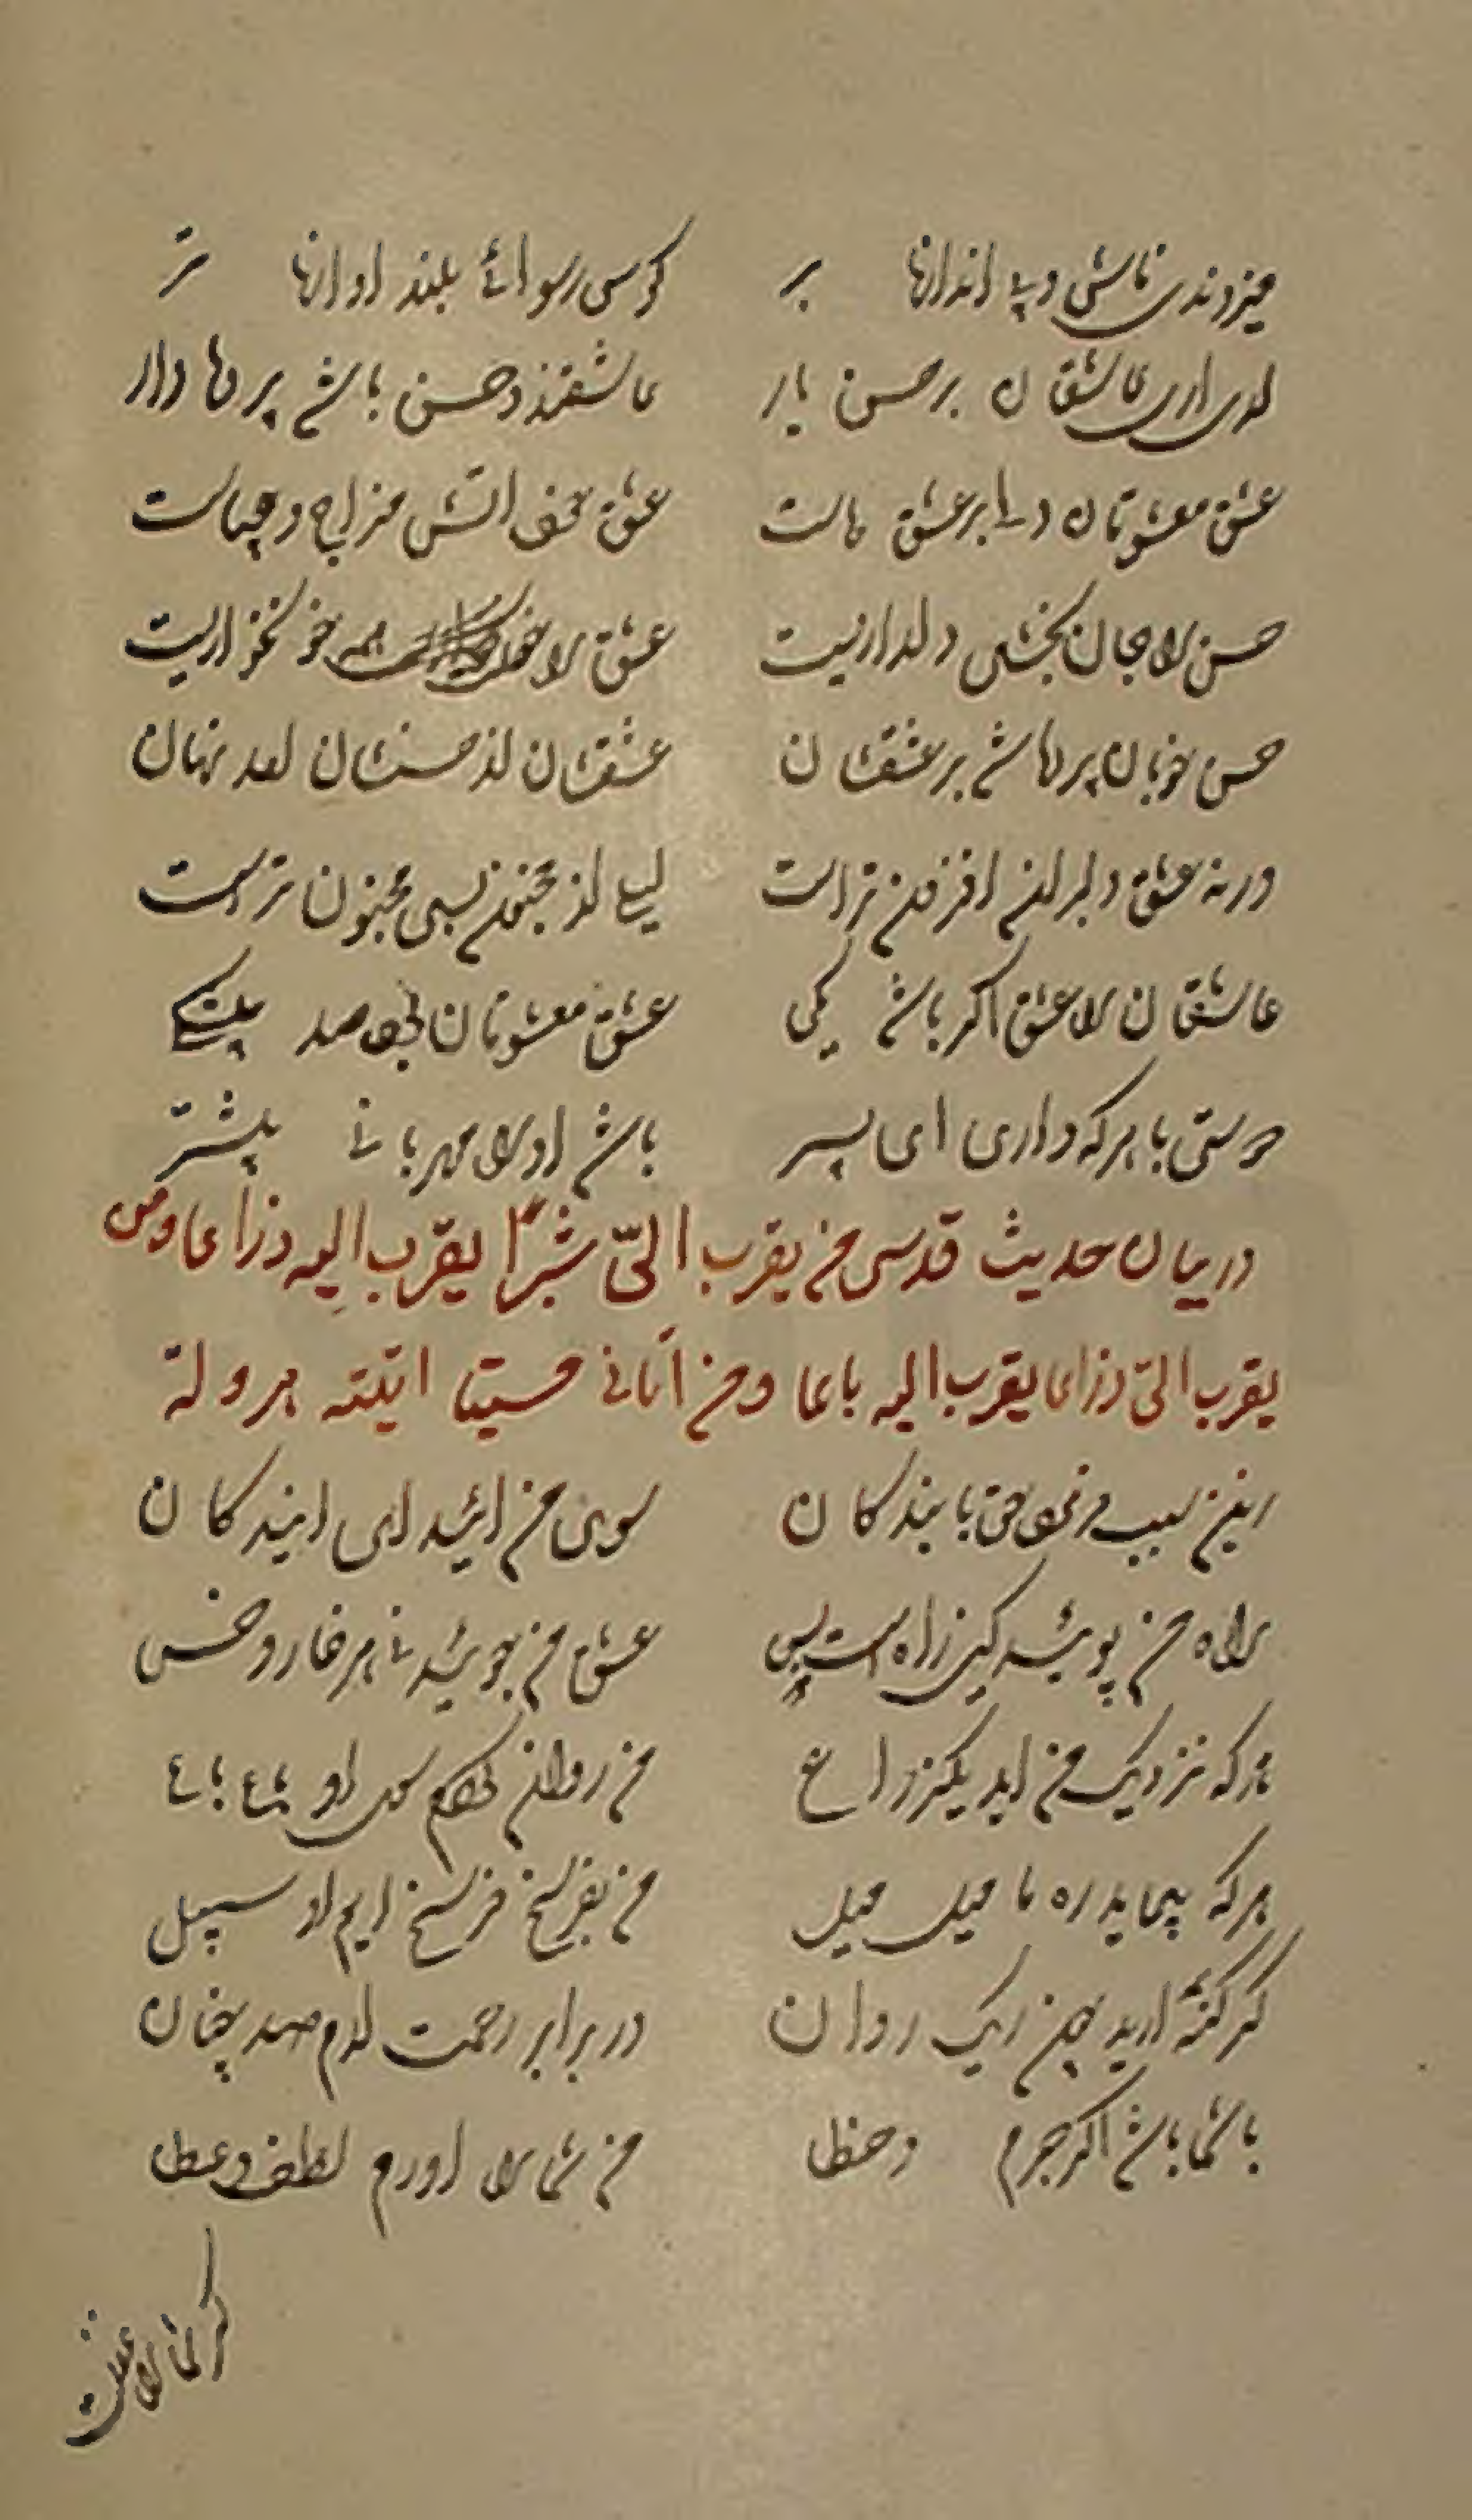 میزدندی فاش و بی اندازها بر کوس رسوائی بلند اوازها تر
اری اری عاشقان بر حسن یار عاشقند و حسن باشد پرده دار
عشق معشوقان دلها بر عشق ماست عشق سخت اتش مزاج و
حسن را جان بخشی و دلداریست عشق را خونخواریست
حسن خوبان پرده باشد بر عشقشان عشقشان از حسنشان امد نهان
ورنه عشق دلبران افزون تر است لیلی از مجنون بسی مجنون تر است
عاشقان را عشق اکر باشد یکی عشق معشوقان بود صد بیشکی
دوستی با هر که داری ای پسر باشد او را مهربانی بیشتر
در بیان حدیث قدسی من یقرب الیّ شبرا یقرب الیه ذراعا ومن
یقرب الیّ ذراعا یقرب الیه باعا ومن اتانی مسیتا اتیته هرولة
زین سبب فرمود حق با بندکان سوی من ائید ای ایندکان
راه من پوئید کین راه است بس عشق من جوئید نی هر خار و خس
هر که نزدیک من اید یکذراع من روان کردم سوی او باع باع
هر که پیماید ره ما میل میل من بفرسخ فرسخ ایم از سبیل
کر کنه ارید چون ریک روان در برابر رحمت ارم صد چنان
با شما باشد اکر جرم و خطا من شما را اورم لطف و عطا
کر شما را